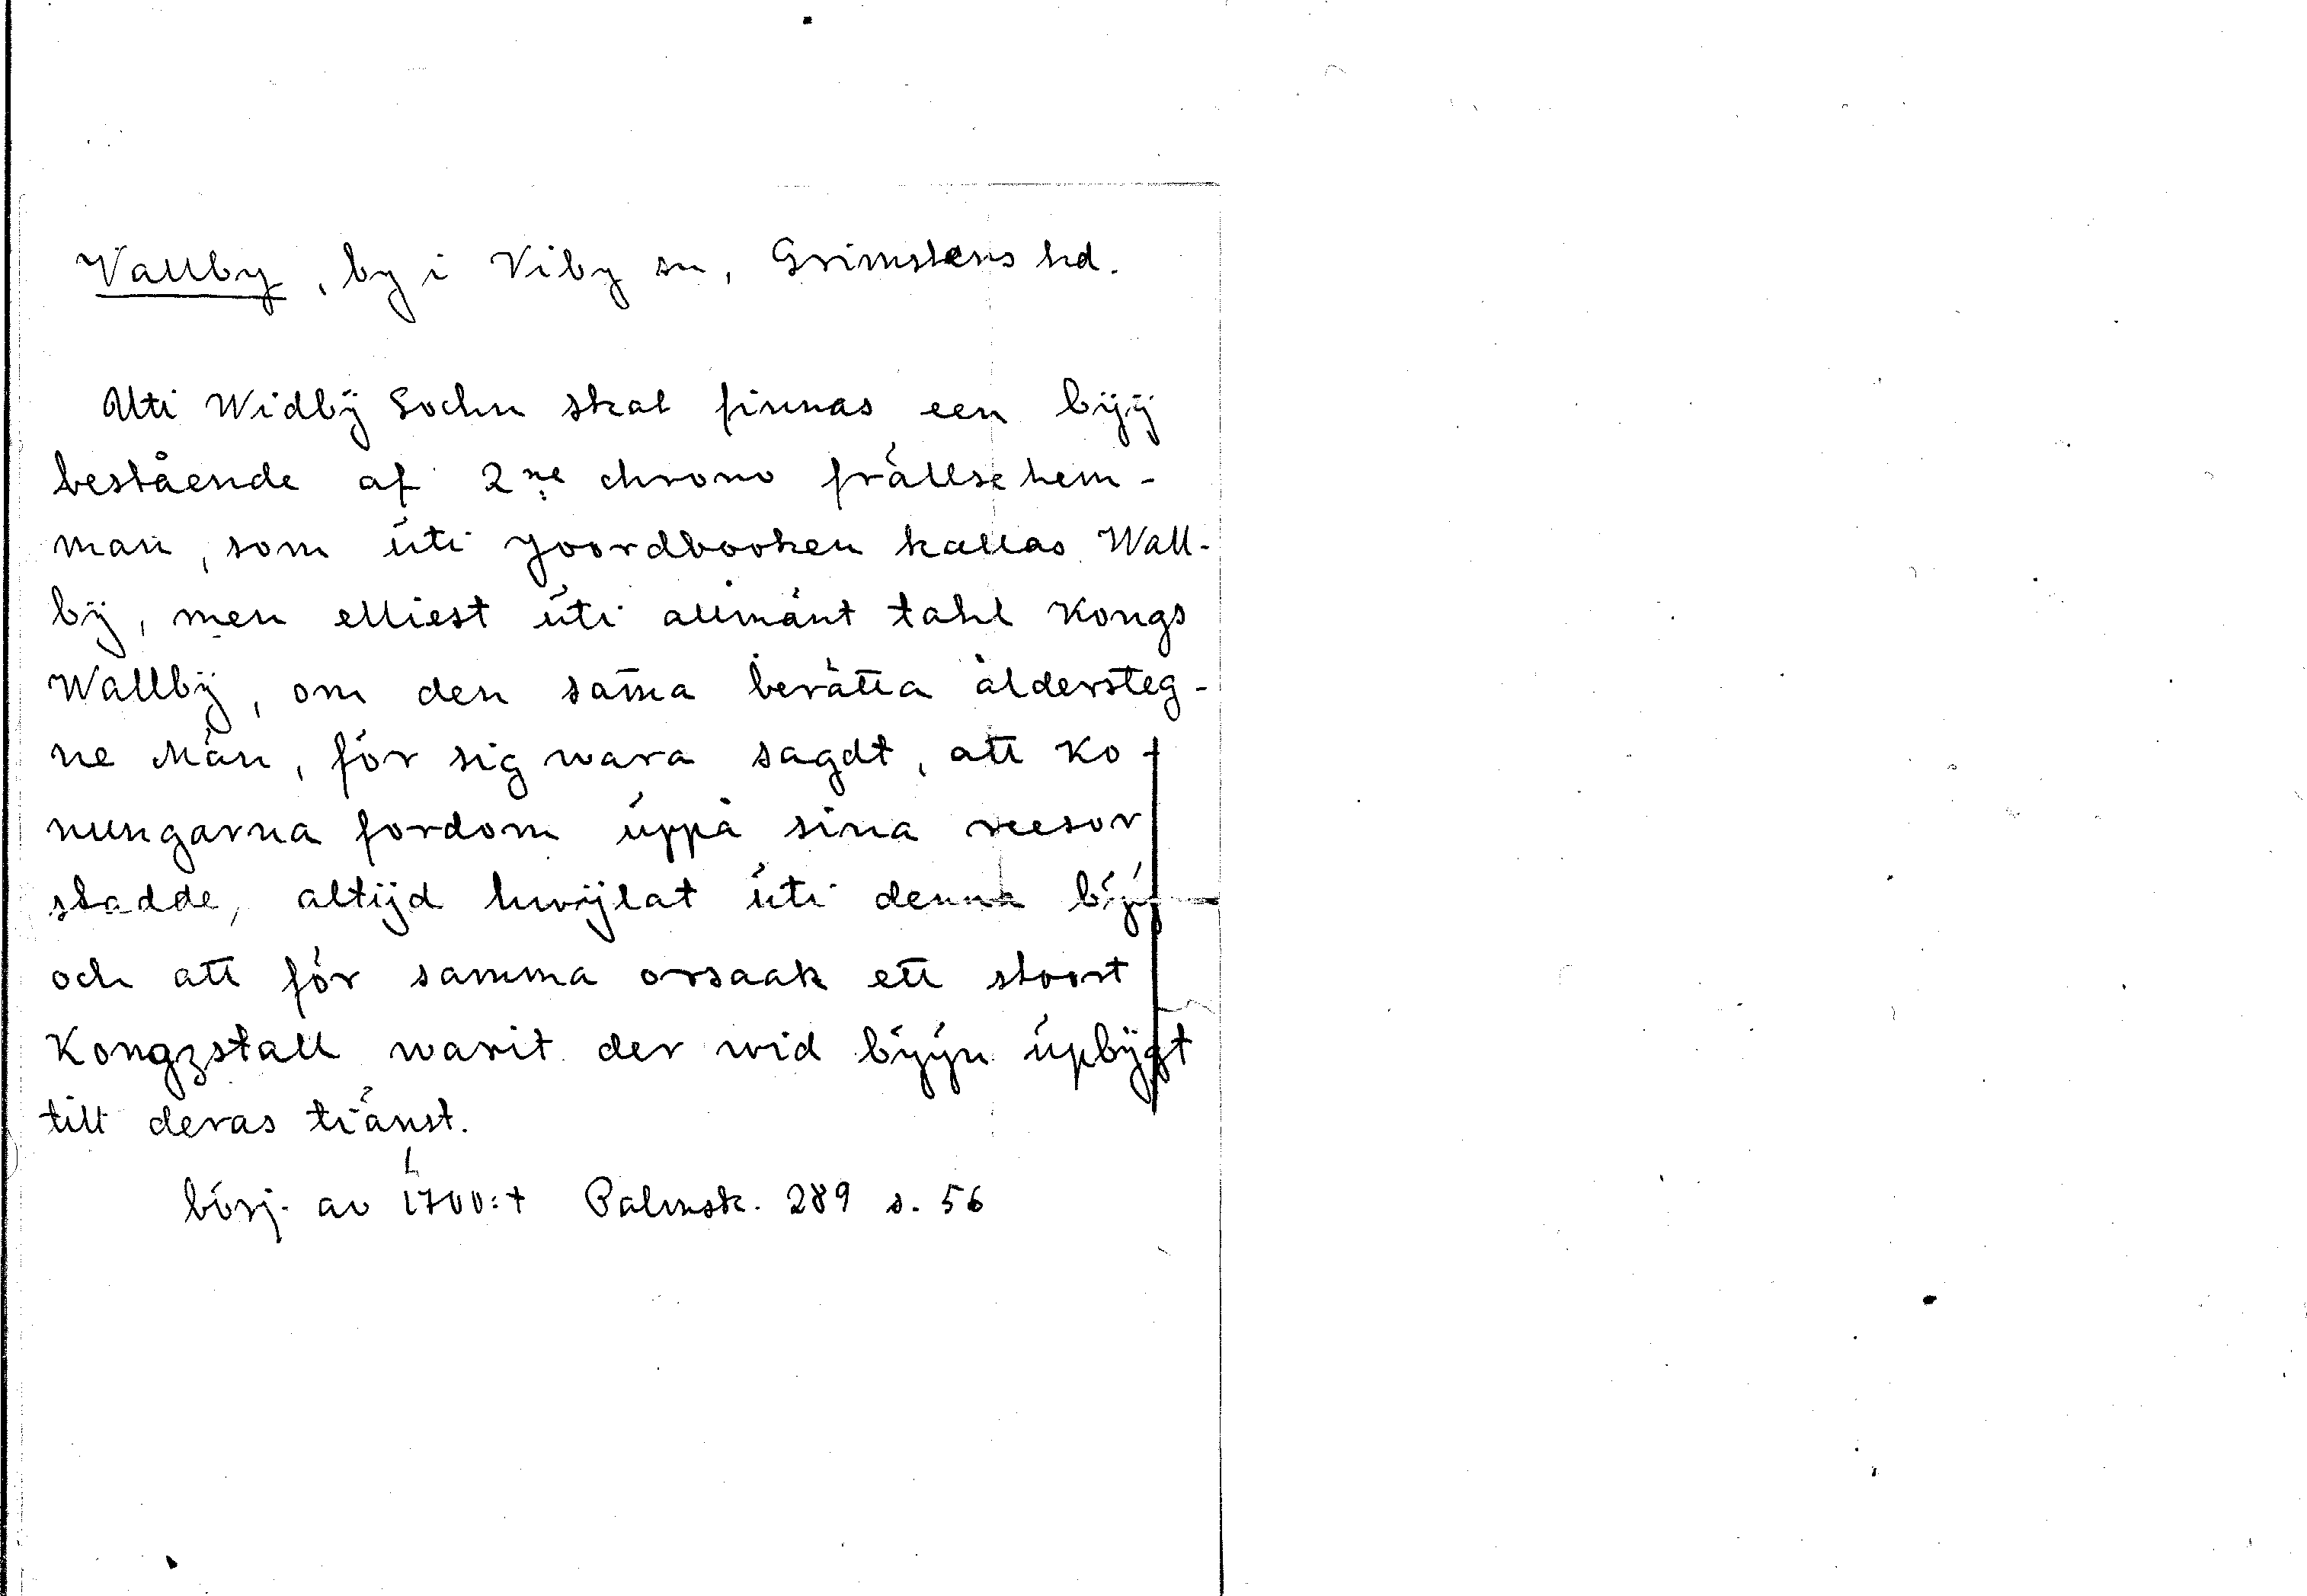 Vallby, by i Viby sn, Grimstens hd.
Uti Widbÿ Sochn skal finnas een bÿÿ
bestående af 2ne chrono frällse hem-
man, som úti Joordbooken kallas Wall-
bÿ, men elliest úti allmänt tahl Kongs
Wallbÿ, om den sam̄a berätta åldersteg-
ne Män, för sig wara sagdt, att Ko-
nungarna fordom úppå sina reesor
stadde, altijd hwijlat úti denna bÿÿ
och att för samma orsaak ett stoort
Kongzstall warit der wid bÿÿn úpbÿgt
till deras tiänst.
börj. av 1700:t Palmsk. 289 s. 56